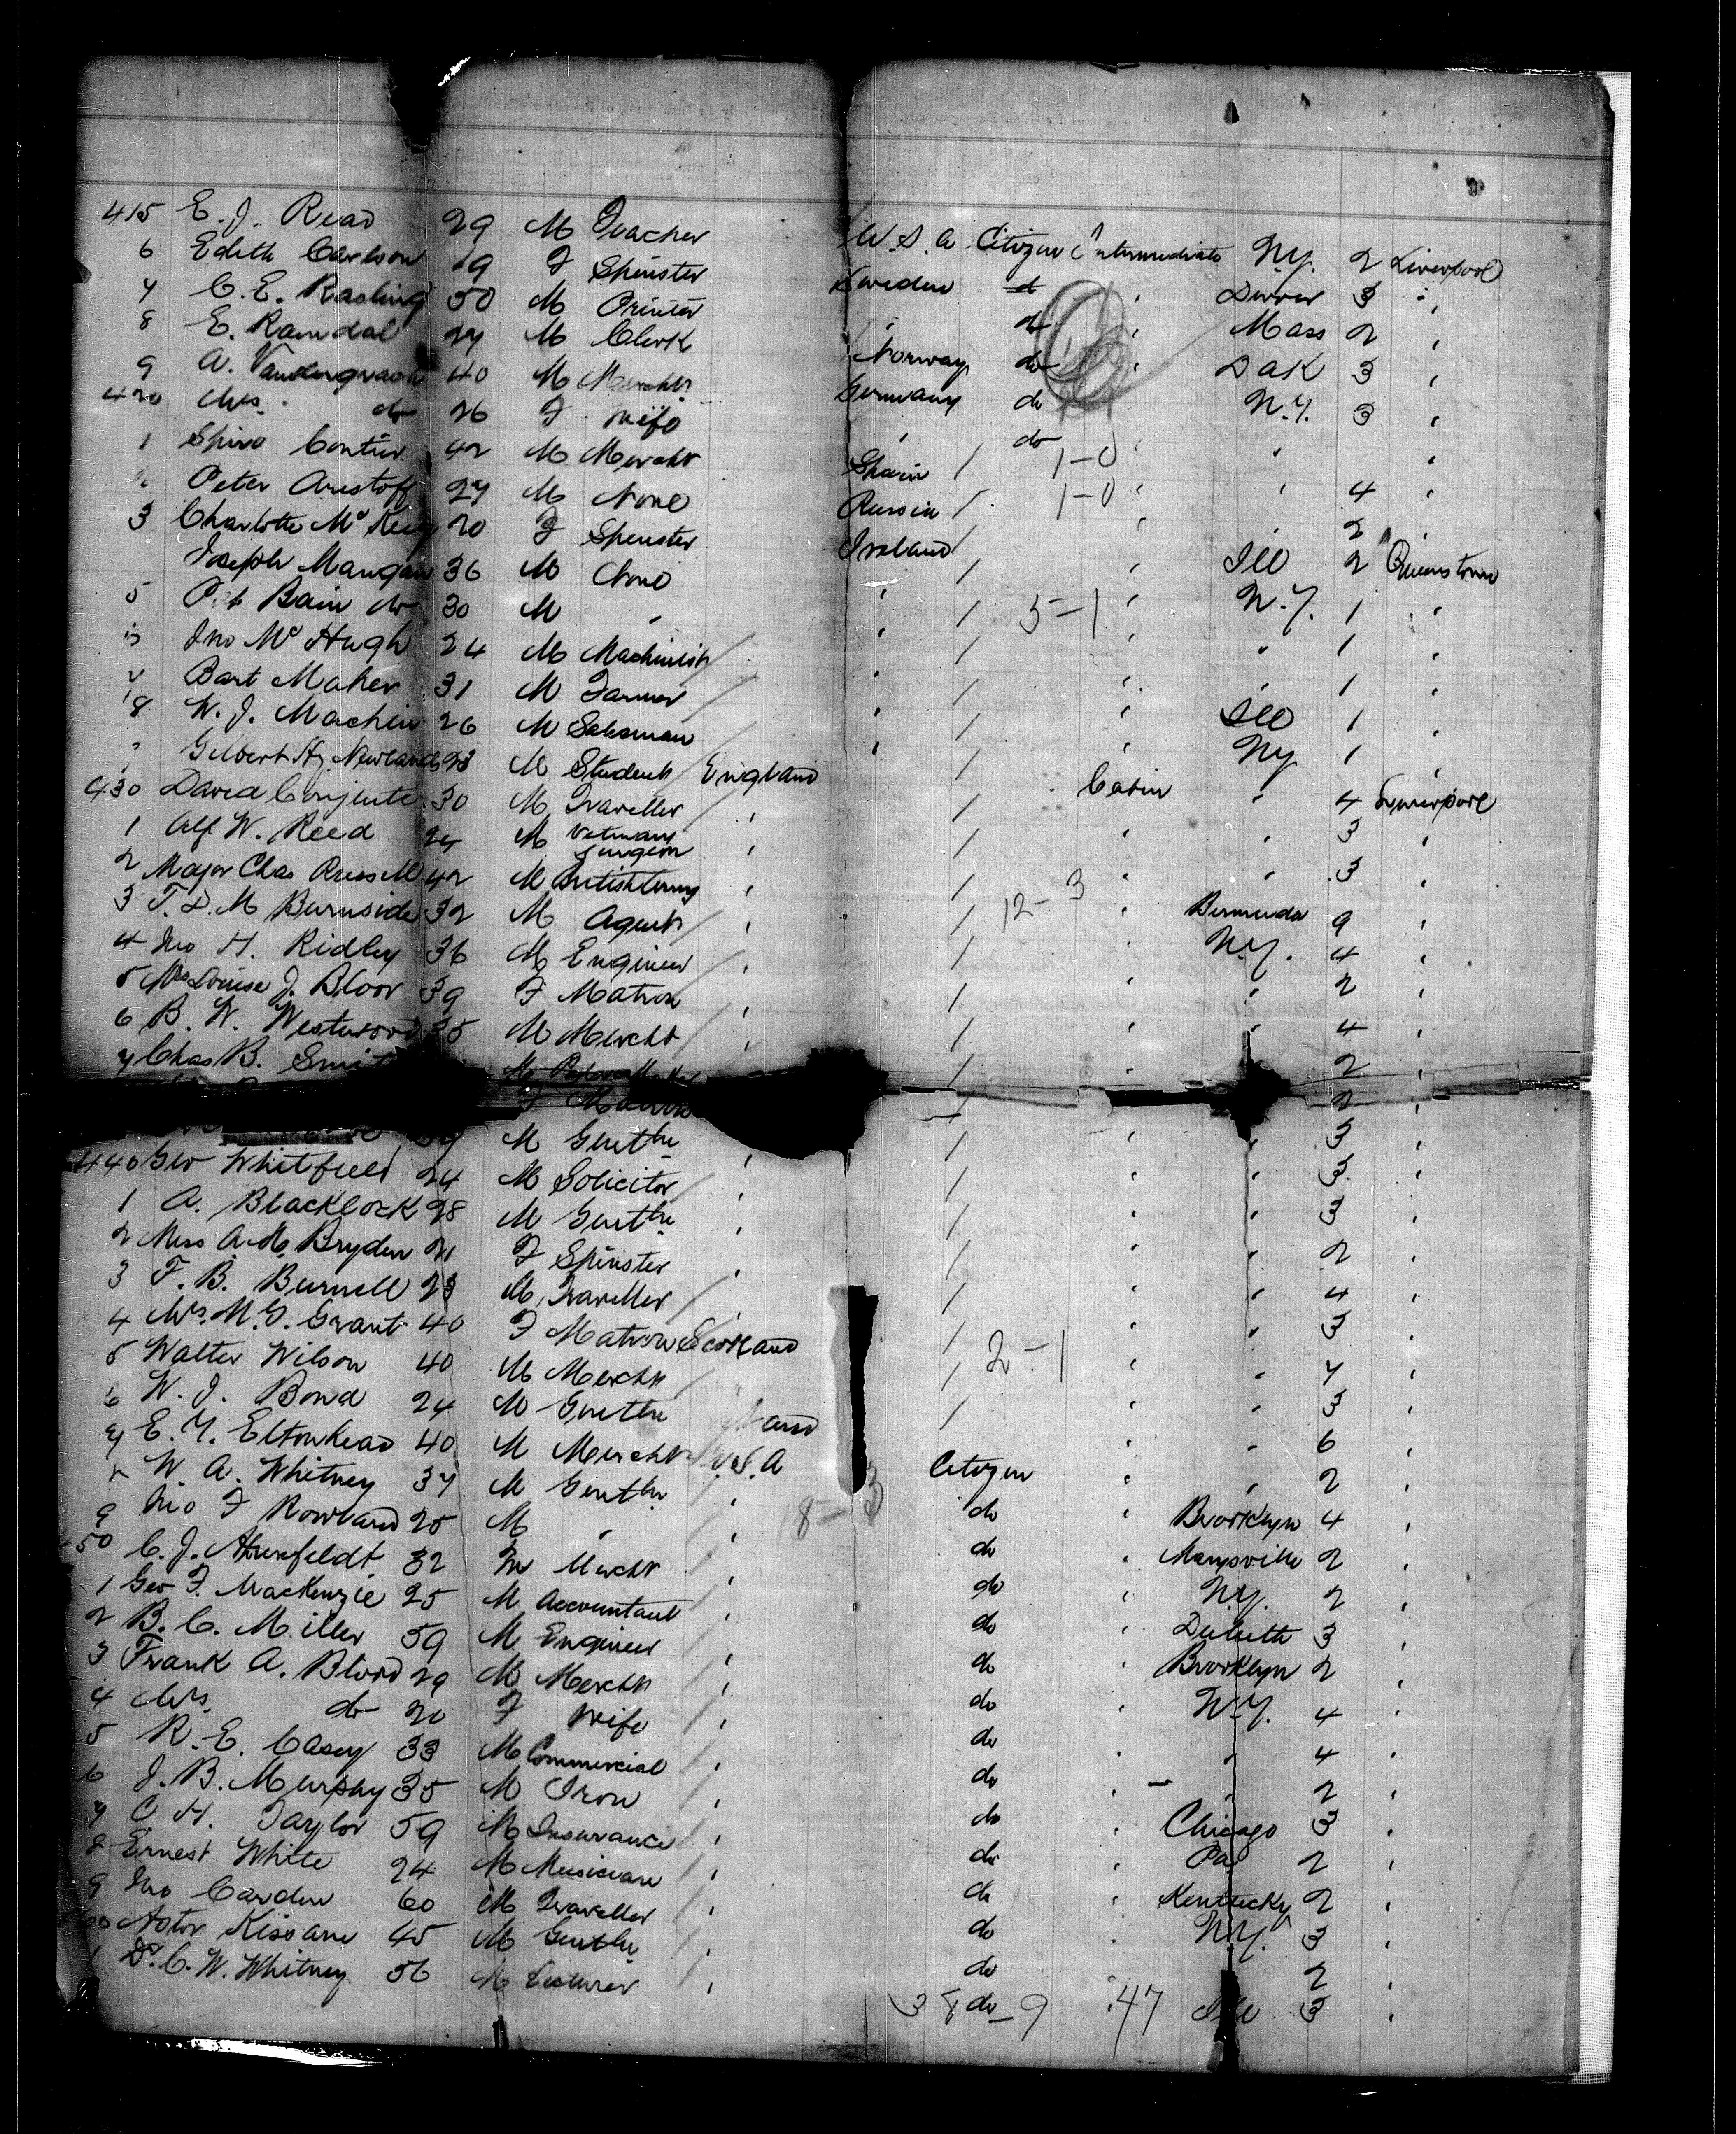 415 E. J. Read 29 M Teacher U.S.A. Citizen Intermediate N.Y. 2 Liverpool
6 Edith Carlson 19 F Spinster Sweden do " Denver 3 "
7 C. E. Rasling 50 M Printer " do " Mass 2 "
8 E. Ramdal 27 M Clerk Norway do " DAK 3 "
9 A. 40 M Mercht Germany do N.Y. 3 "
420 Mrs. do 26 F Wife " do " " "
1 Spiro 42 M Mercht Spain / 1-0 " " 4 "
2 Peter Aristoff 27 M None Russia / 1-0 " " 2 "
3 Charlotte Mc 20 F Spinster Ireland / " Ill 2 Queenstown
Joseph Mangan 36 M None " / 5-1 " N.Y. 1 "
5 Pat Bain do 30 M " " / " 1 "
6 Jno McHugh 24 M Machinist / " / " " 1 "
7 Bart Maher 31 M Farmer / " / " Ill 1 "
18 W. J. Machin 26 M Salesman / " / " N.Y. 1 "
Gilbert Hy. Newland 23 M Student / England / Cabin " 4 Liverpool
430 David 30 M Traveller / " / " " 3 "
1 Alf W. Reed 24 M Vetinary " / " " 3 "
Surgeon
2 Major Chas Russell 42 M British Army " / 12-3 " Bermuda 9 "
3 T. D. M Burnside 32 M Agent / " / " N.Y. 4 "
4 Jno H. Ridley 36 M Engineer / " / " " 2 "
5 Mrs Louise J. Bloor 39 F Matron " / " " 4 "
6 B. W. Westwood 35 M Mercht / " / " 2 "
7 Chas B. M Maker 2 "
F Matron / " " 3 "
M Gentln " / " " 3 "
440 Geo Whitfield 24 M Solicitor / " / " " 3 "
1 A. Blacklock 28 M Gentln " / " " 2 "
2 Miss A. M. Bryden 21 F Spinster " / " " 4 "
3 F. B. Burnell 23 M Traveller / " / " " 3 "
4 Mrs. M. G. Grant 40 F Matron Scotland / 2-1 " " 7 "
5 Walter Wilson 40 M Mercht / / " " 3 "
6 W. J. Bond 24 M Gentln " " 6 "
7 E. Y. Eltonhead 40 M Mercht U.S.A Citizen " " 2 "
8 W. A. Whitney 37 M Gentln " 18-3 do " Brooklyn 4 "
9 Jno F Rowland 25 M " " do " Marysville 2 "
50 C. J. Ahrenfeldt 32 M Mercht / " do " N.Y. 2 "
1 Geo F. MacKenzie 25 M Accountant / " do " Duluth 3 "
2 B. C. Miller 59 M Engineer / " do " Brooklyn 2 "
3 Frank A. Blood 29 M Mercht / " do N.Y. 4 "
4 Mrs. do 20 F Wife / " do " " 4 "
5 R. E. Casey 33 M Commercial / " do " " 2 "
6 J. B. Murphy 35 M Iron / " do " Chicago 3 "
7 C H. Taylor 59 M Insurance / " do " Pa 2 "
8 Ernest White 24 M Musician / " do " Kentucky 2 "
9 Jno Carden 60 M Traveller / " do " N.Y. 3 "
60 Astor Kissane 45 M Gentln / " do 2 "
1 Dr. C. W. Whitney 56 M Lecturer / " do 9 47 Ill 3 "